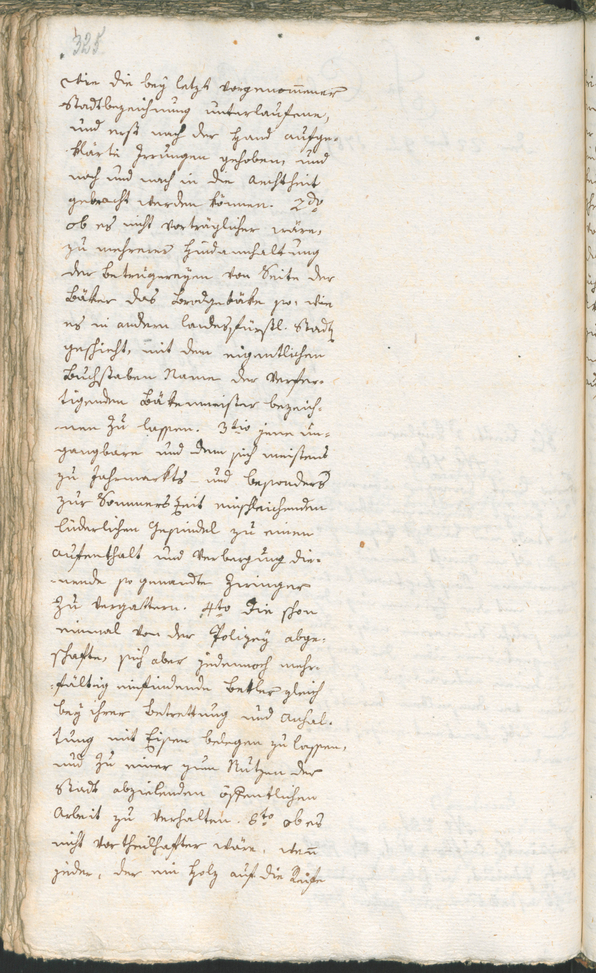 325.
wie die bey letzt vorgenommener
Stadtbezeichnung unterlaufene,
und erst nach der Hand aufge-
klärte Irrungen gehoben, und
nach und nach in die Aechtheit
gebracht werden können. 2do
ob es nicht vorträglicher wäre,
zu mehrerer Hindanhaltung
der Betrügereyen von Seite der
Bäker das Brodgebäke so, wie
es in andern landesfürstl. Stadt
geschieht, mit den eigentlichen
Buchstaben Name der verfer-
tigenden Bäkenmeister bezeich-
nen zu lassen. 3tio jene un-
gangbare und dem sich meistens
zu Jahrmarkts- und besonders
zur Sommers Zeit einschleichenden
liederlichen Gesindel zu einen
Aufenthalt und Verbergung die-
nende so genandte Zwinger
zu vergattern. 4to die schon
einmal von der Polizey abge-
schafte, sich aber jedennoch mehr-
fältig einfindende Betler gleich
bey ihrer Betrettung und Anhal-
tung mit Eisen belegen zu lassen,
und zu einer zum Nutzen der
Stadt abzielenden öffentlichen
Arbeit zu verhalten. 5to ob es
nicht vortheilhafter wäre, wenn
jeder, der ein Holz auf die